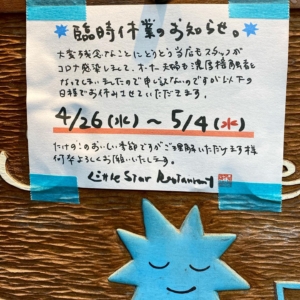 臨時休業のお知らせ。
大変残念なことにとうとう当店もスタッフが
コロナ発症しまして、オーナー夫婦も濃厚接触者と
なってしまいましたので申し訳ないのですが以下の
日程でお休みさせていただきます。
4/26(火)〜5/4(水)
たけのこのおいしい季節ですがご理解いただけます様
何卒よろしくお願いいたします。
Little Star Restaurant